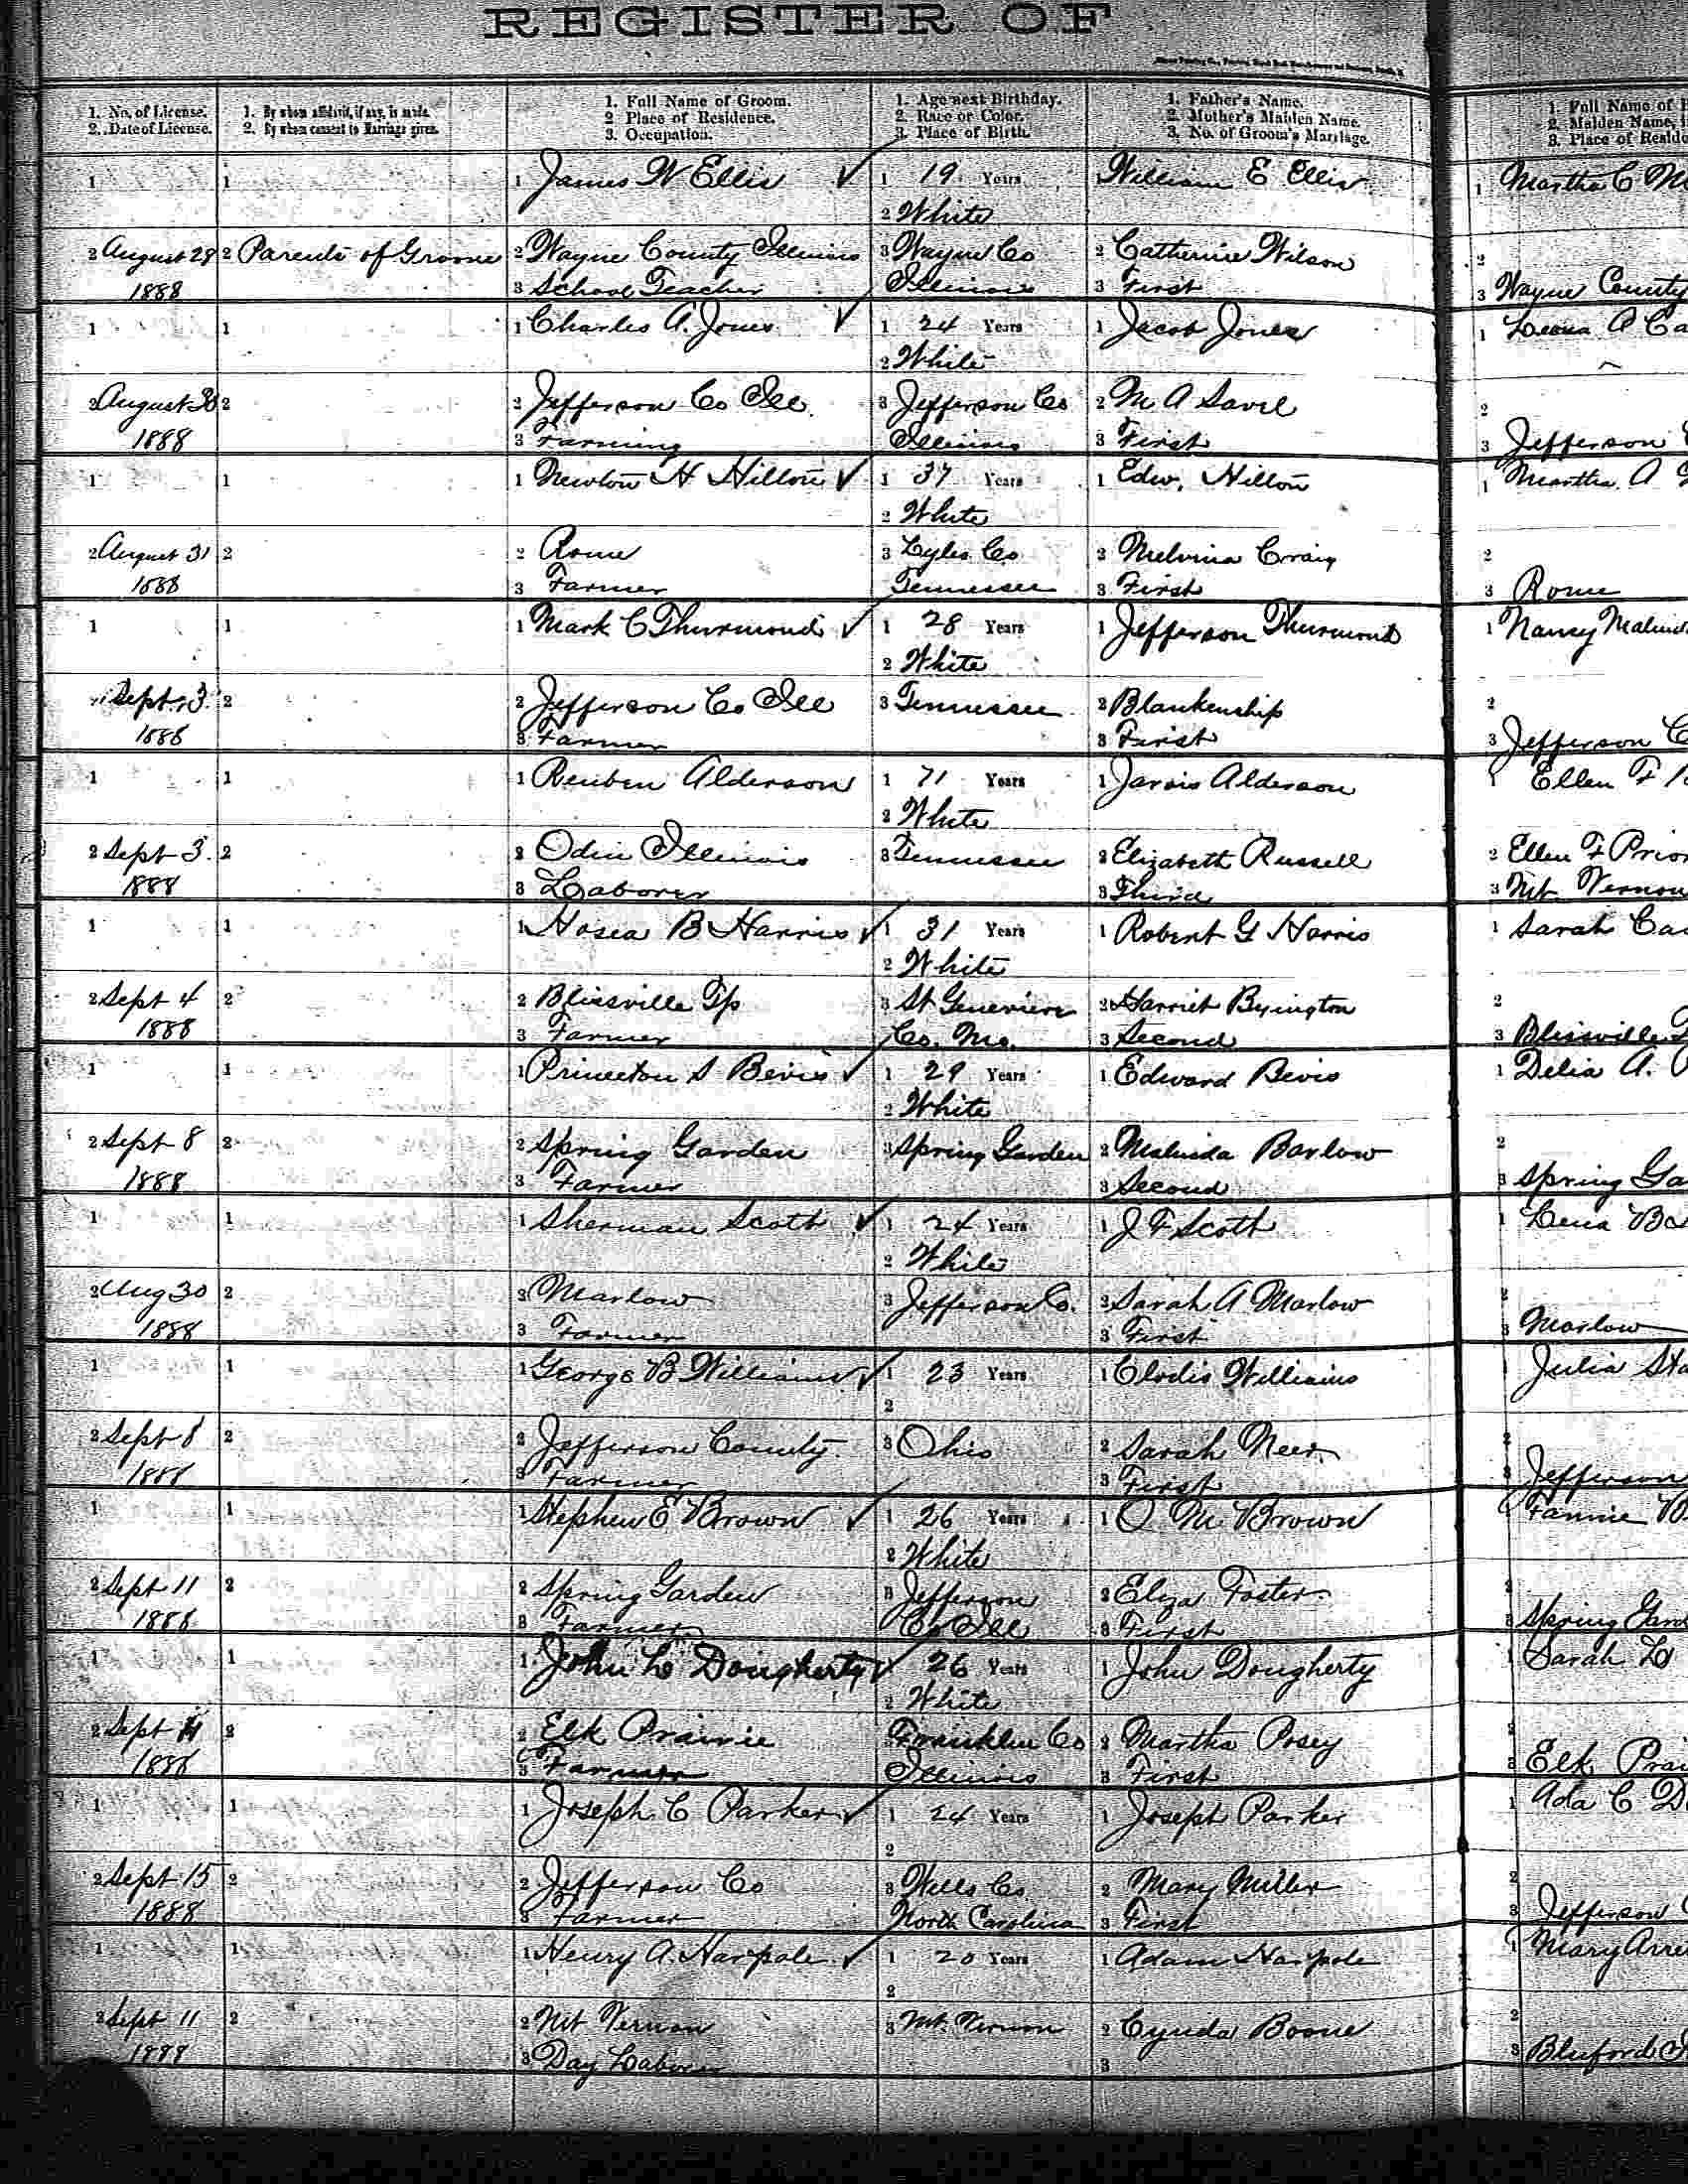 REGISTER OF
1. No. of License. 1. By whom affidavit, if any, is made. 1. Full Name of Groom. 1. Age next Birthday. 1. Father's Name. 1. Full Name of
2. Date of License. 2. By whom consent to Marriage given. 2 Place of Residence. 2. Race or Color. 2. Mother's Maiden Name. 2. Maiden Name,
3. Occupation. 3. Place of Birth. 3. No. of Groom's Marriage. 3. Place of
1 1 1 James W Ellis ✓ 1 19 Years William E Ellis 1 Martha C
2 White
2 August 29 2 Parents of Groom 2 Wayne County Illinois 3 Wayne Co 2 Catherine Wilson 2
1888 3 School Teacher Illinois 3 First 3 Wayne County
1 1 1 Charles A. Jones ✓ 1 24 Years 1 Jacob Jones 1 Leona A
2 White
2 August 30 2 2 Jefferson Co Ill. 3 Jefferson Co 2 M A Savil 2
1888 3 Farming Illinois 3 First 3 Jefferson
1 1 1 Newton H Hilton ✓ 1 37 Years 1 Edw. Hilton 1 Martha A
2 White
2 August 31 2 2 Rome 3 Lyles Co 2 Melvina Craig 2
1888 3 Farmer Tennessee 3 First 3 Rome
1 1 1 Mark C Thurmond ✓ 1 28 Years 1 Jefferson Thurmond 1 Nancy
2 White
Sept. 3 2 2 Jefferson Co Ill 3 Tennessee 2 Blankenship 2
1888 3 Farmer 3 First 3 Jefferson
1 1 1 Reuben Alderson 1 71 Years 1 Jarvis Alderson 1 Ellen F
2 White
2 Sept 3. 2 2 Odin Illinois 3 Tennessee 2 Elizabeth Russell 2 Ellen F
1888 3 Laborer 3 Third 3 Mt. Vernon
1 1 1 Hosea B Harris ✓ 1 31 Years 1 Robert G Harris 1 Sarah
2 White
2 Sept 4 2 2 Blissville Tp 3 St Genevieve 2 Harriet Byington 2
1888 3 Farmer Co. Mo. 3 Second 3 Blissville
1 1 1 Princeton S Bevis ✓ 1 29 Years 1 Edward Bevis 1 Delia A.
2 White
2 Sept 8 2 2 Spring Garden 3 Spring Garden 2 Malinda Barlow 2
1888 3 Farmer 3 Second 3 Spring
1 1 1 Sherman Scott ✓ 1 24 Years 1 J F Scott 1 Lena
2 White
2 Aug 30 2 2 Marlow 3 Jefferson Co. 2 Sarah A Marlow 2
1888 3 Farmer 3 First 3 Marlow
1 1 1 George B Williams ✓ 1 23 Years 1 Clodis Williams 1 Julia
2
2 Sept 8 2 2 Jefferson County 3 Ohio 2 Sarah Neer 2
1888 3 Farmer 3 First 3 Jefferson
1 1 1 Stephen E Brown ✓ 1 26 Years 1 O M Brown 1 Fannie
2 White
2 Sept 11 2 2 Spring Garden 3 Jefferson 2 Eliza Foster 2
1888 3 Farmer Co Ill 3 First 3 Spring
1 1 1 John L Dougherty ✓ 26 Years 1 John Dougherty 1 Sarah
2 White
2 Sept 2 2 Elk Prairie Franklin Co 2 Martha Posey 2
1888 3 Farmer Illinois 3 First 3 Elk
1 1 1 Joseph C Parker ✓ 1 24 Years 1 Joseph Parker 1 Ada C
2
2 Sept 15 2 2 Jefferson Co 3 Wells Co 2 Mary Miller 2
1888 3 Farmer North Carolina 3 First 3 Jefferson
1 1 1 Henry A. Harpole ✓ 1 20 Years 1 Adam Harpole 1 Mary
2
2 Sept 11 2 2 Mt Vernon 3 Mt. Vernon 2 Cynda Boone 2
1888 3 Day Laborer 3 3 Bluford